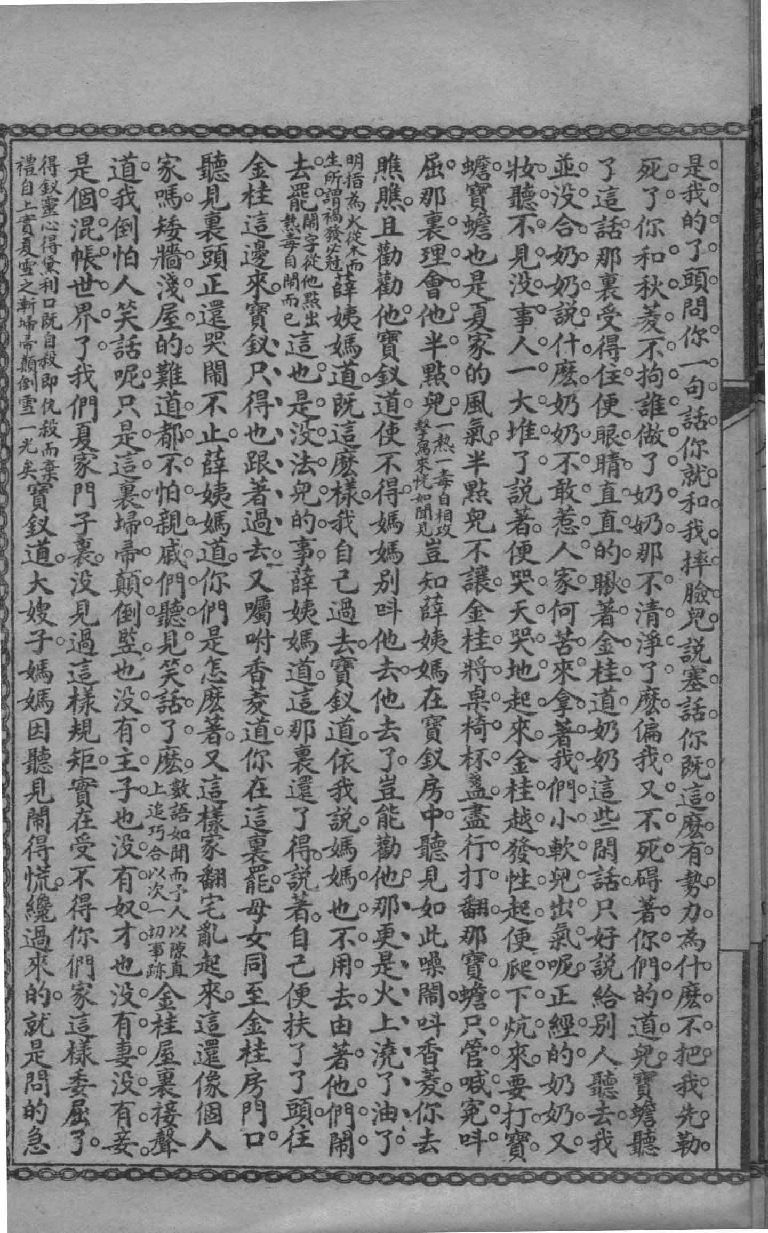 是我的了頭問你一句話你就和我摔臉兒說塞話你既這麽有勢力為什麽不把我先勒
死了你和秋菱不拘誰做了奶奶那不清淨了麽偏我又不死碍著你們的道兒寶蟾聽
了這話那裏受得住便眼睛直直的瞅著金桂道奶奶這些閑話只好說給別人聽去我
並没合奶奶說什麽奶奶不敢惹人家何苦來拿著我們小軟兒出氣呢正經的奶奶又
妝聽不見没事人一大堆了說著便哭天哭地起來金桂越發性起便爬下炕來要打寶
蟾寶蟾也是夏家的風氣半點兒不讓金桂將桌椅杯盞盡行打翻那寶蟾只管喊冤呌
屈那裏理會他半點兒一熱一毒自相攻擊寫來恍如聞見豈知薛姨媽在寶釵房中聽見如此嚷鬧呌香菱你去
瞧瞧且勸勸他寶釵道使不得媽媽別呌他去他去了豈能勸他那更是火上澆了油了
明指為火從木而生所謂禍發必尅薛姨媽道既這麽樣我自己過去寶釵道依我說媽媽也不用去由著他們鬧
去罷鬧字從他點出熱毒自鬧而已這也是没法兒的事薛姨媽道這那裏還了得說著自己便扶了了頭往
金桂這邊來寶釵只得也跟著過去又囑咐香菱道你在這裏罷母女同至金桂房門口
聽見裏頭正還哭鬧不止薛姨媽道你們是怎麽著又這樣家翻宅亂起來這還像個人
家嗎矮牆淺屋的難道都不怕親戚們聽見笑話了麽數語如聞而予人以隙直上追巧合以次一切事跡金桂屋裏接聲
道我倒怕人笑話呢只是這裏埽帚顛倒竪也没有主子也没有奴才也没有妻没有妾
是個混帳世界了我們夏家門子裏没見過這樣規矩實在受不得你們家這樣委屈了
得釵靈心得黛利口既自殺即仇殺而棄禮自上實夏雪之漸埽帚顛倒雪一光矣寶釵道大嫂子媽媽因聽見鬧得慌纔過來的就是問的急